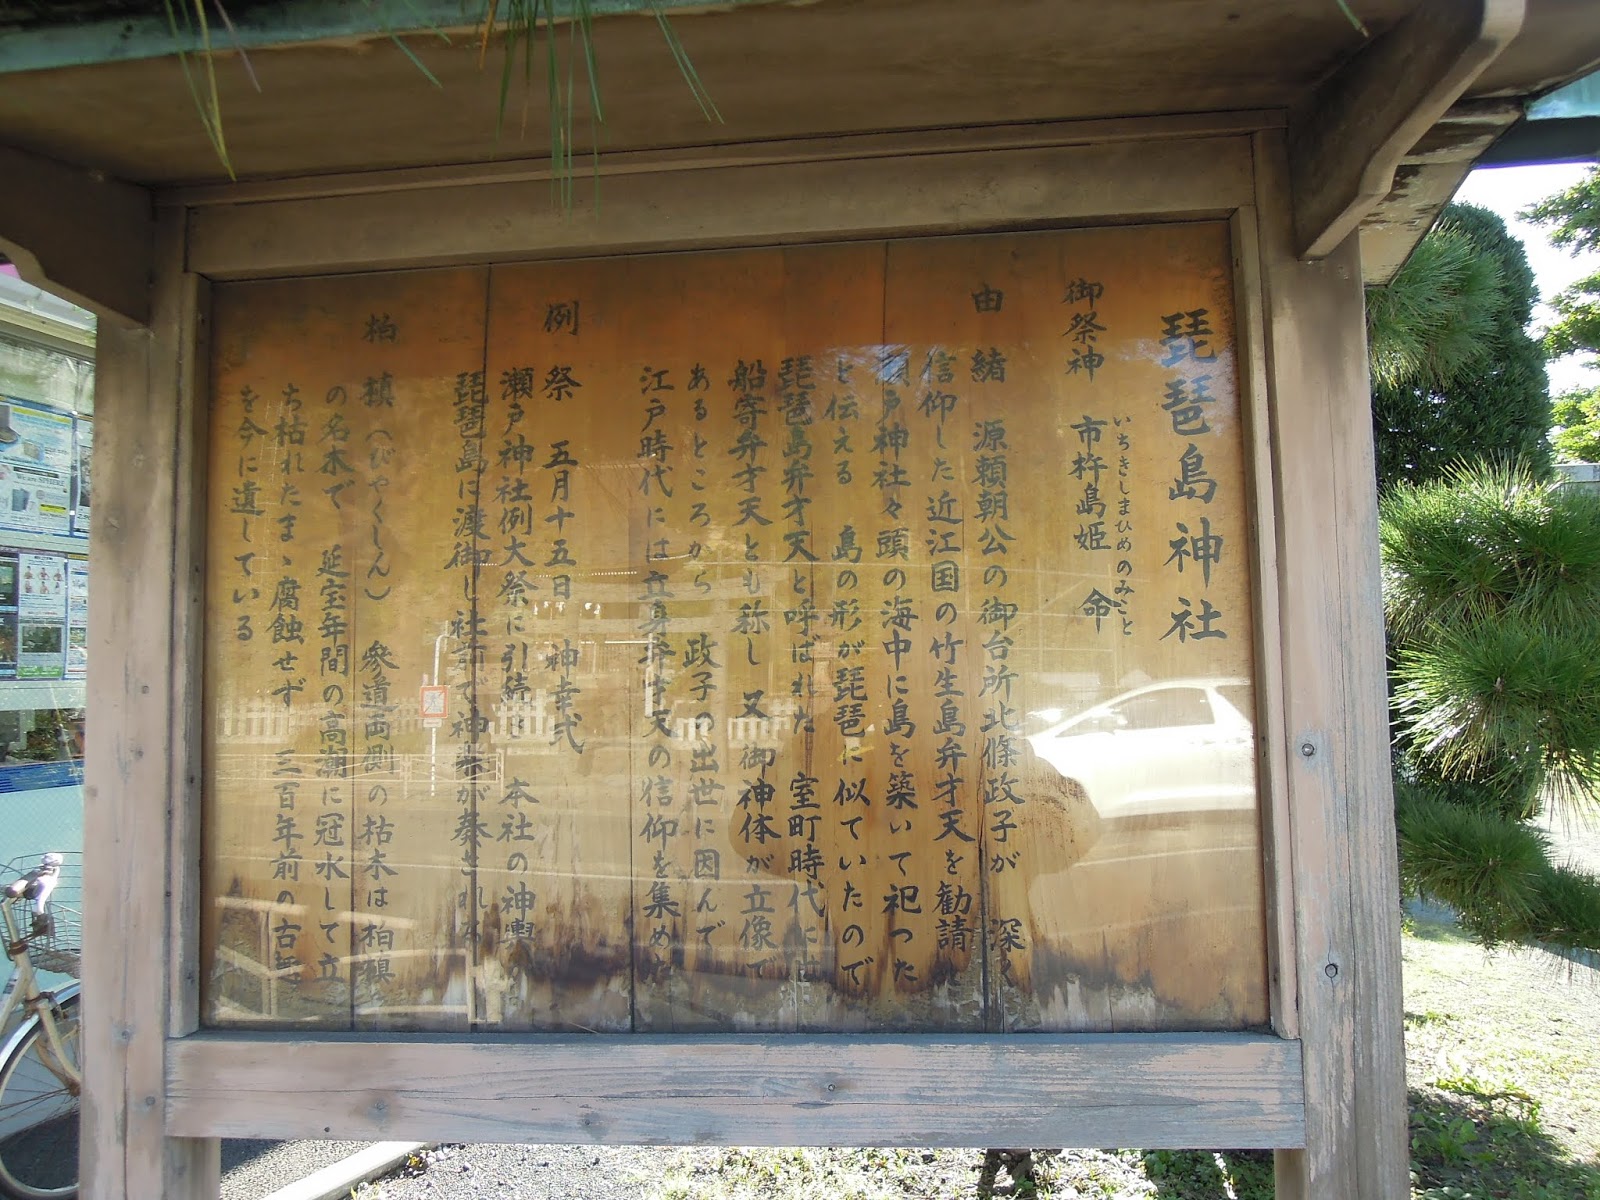 琵琶島神社
御祭神　市杵島姫　命
いちきしまひめのみこと
由　緒　源頼朝公の御台所北條政子が　深く
信仰した近江国の竹生島弁才天を勧請し
瀬戸神社々頭の海中に島を築いて祀った
と伝える　島の形が琵琶に似ていたので
琵琶島弁才天と呼ばれた　室町時代には
船寄弁才天とも称し　又　御神体が立像で
あるところから　政子の出世に因んで
江戸時代には立身弁才天の信仰を集めた
例　祭　五月十五日　神幸式
瀬戸神社例大祭に引続き　本社の神輿が
琵琶島に渡御し社前で神楽が奏される
柏　槙（びゃくしん）　参道両側の枯木は柏槙
の名木で　延宝年間の高潮に冠水して立
ち枯れたまゝ腐蝕せず　三百年前の古
を今に遺している